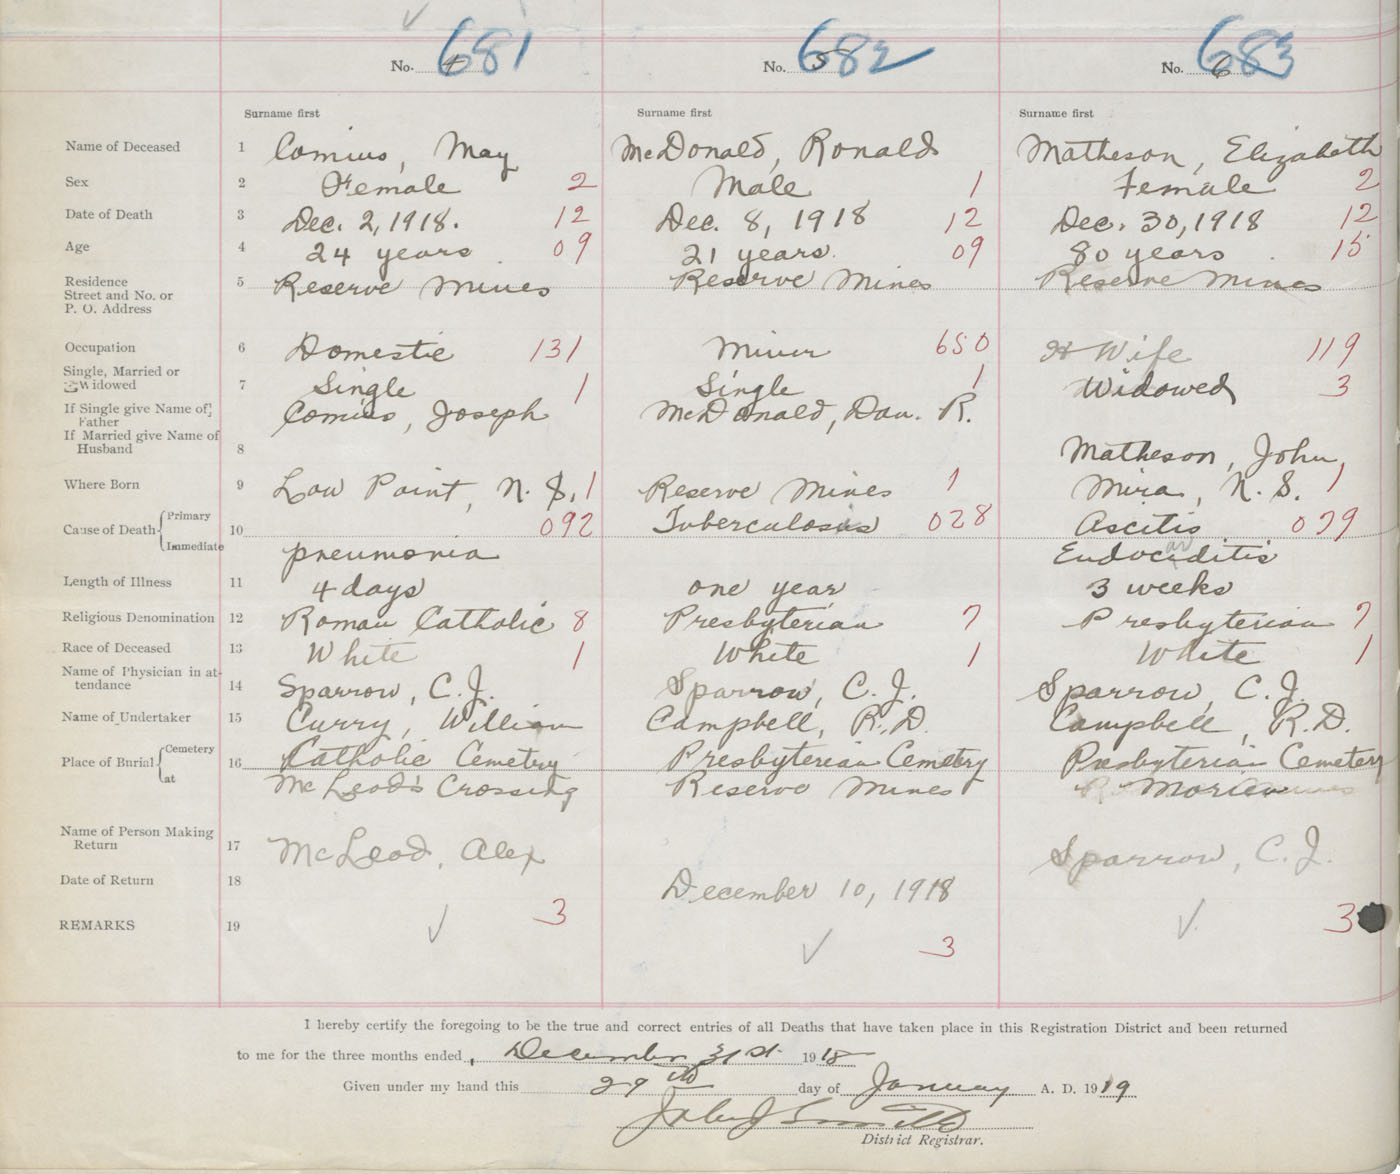 681 682 683
No. 4 No. 5 No. 6
Surname first Surname first Surname first
Name of Deceased 1 Comius, May McDonald, Ronald Matheson, Elizabeth
Sex 2 Female 2 Male 1 Female 2
Date of Death 3 Dec. 2, 1918. 12 Dec. 8, 1918 12 Dec. 30, 1918 12
Age 4 24 years 09 21 years. 09 80 years 15
Residence 5 Reserve Mines Reserve Mines Reserve Mines
Street and No. or
P. O. Address
Occupation 6 Domestic 131 Miner 650 H Wife 119
Single, Married or
Widowed 7 Single 1 Single 1 Widowed 3
If Single give Name of Comius, Joseph McDonald, Dan. R.
Father
If Married give Name of
Husband 8 Matheson, John,
Where Born 9 Low Point, N. S. 1 Reserve Mines 1 Mira, N. S. 1
Cause of Death Primary 10 092 Tuberculosis 028 Ascitis 079
Immediate pneumonia Endocarditis
Length of Illness 11 4 days one year 3 weeks
Religious Denomination 12 Roman Catholic 8 Presbyterian 7 Presbyterian 7
Race of Deceased 13 White 1 White 1 White 1
Name of Physician in at-
tendance 14 Sparrow, C. J. Sparrow, C. J. Sparrow, C. J.
Name of Undertaker 15 Curry, William Campbell, R. D. Campbell, R. D.
Place of Burial Cemetery 16 Catholic Cemetery Presbyterian Cemetery Presbyterian Cemetery
at McLeod's Crossing Reserve Mines Morien
Name of Person Making
Return 17 McLeod, Alex Sparrow, C. J.
Date of Return 18 December 10, 1918
REMARKS 19 3 3 3
I hereby certify the foregoing to be the true and correct entries of all Deaths that have taken place in this Registration District and been returned
to me for the three months ended, December 31st. 1918
Given under my hand this 29th day of January A. D. 1919
John J Smith
District Registrar.